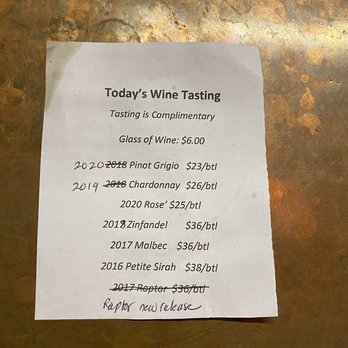 Today's Wine Tasting
Tasting is Complimentary
Glass of Wine: $6.00
2020 2018 Pinot Grigio $23/btl
2019 2018 Chardonnay $26/btl
2020 Rose' $25/btl
2018 Zinfandel $36/btl
2017 Malbec $36/btl
2016 Petite Sirah $38/btl
2017 Raptor $36/btl
Raptor new release